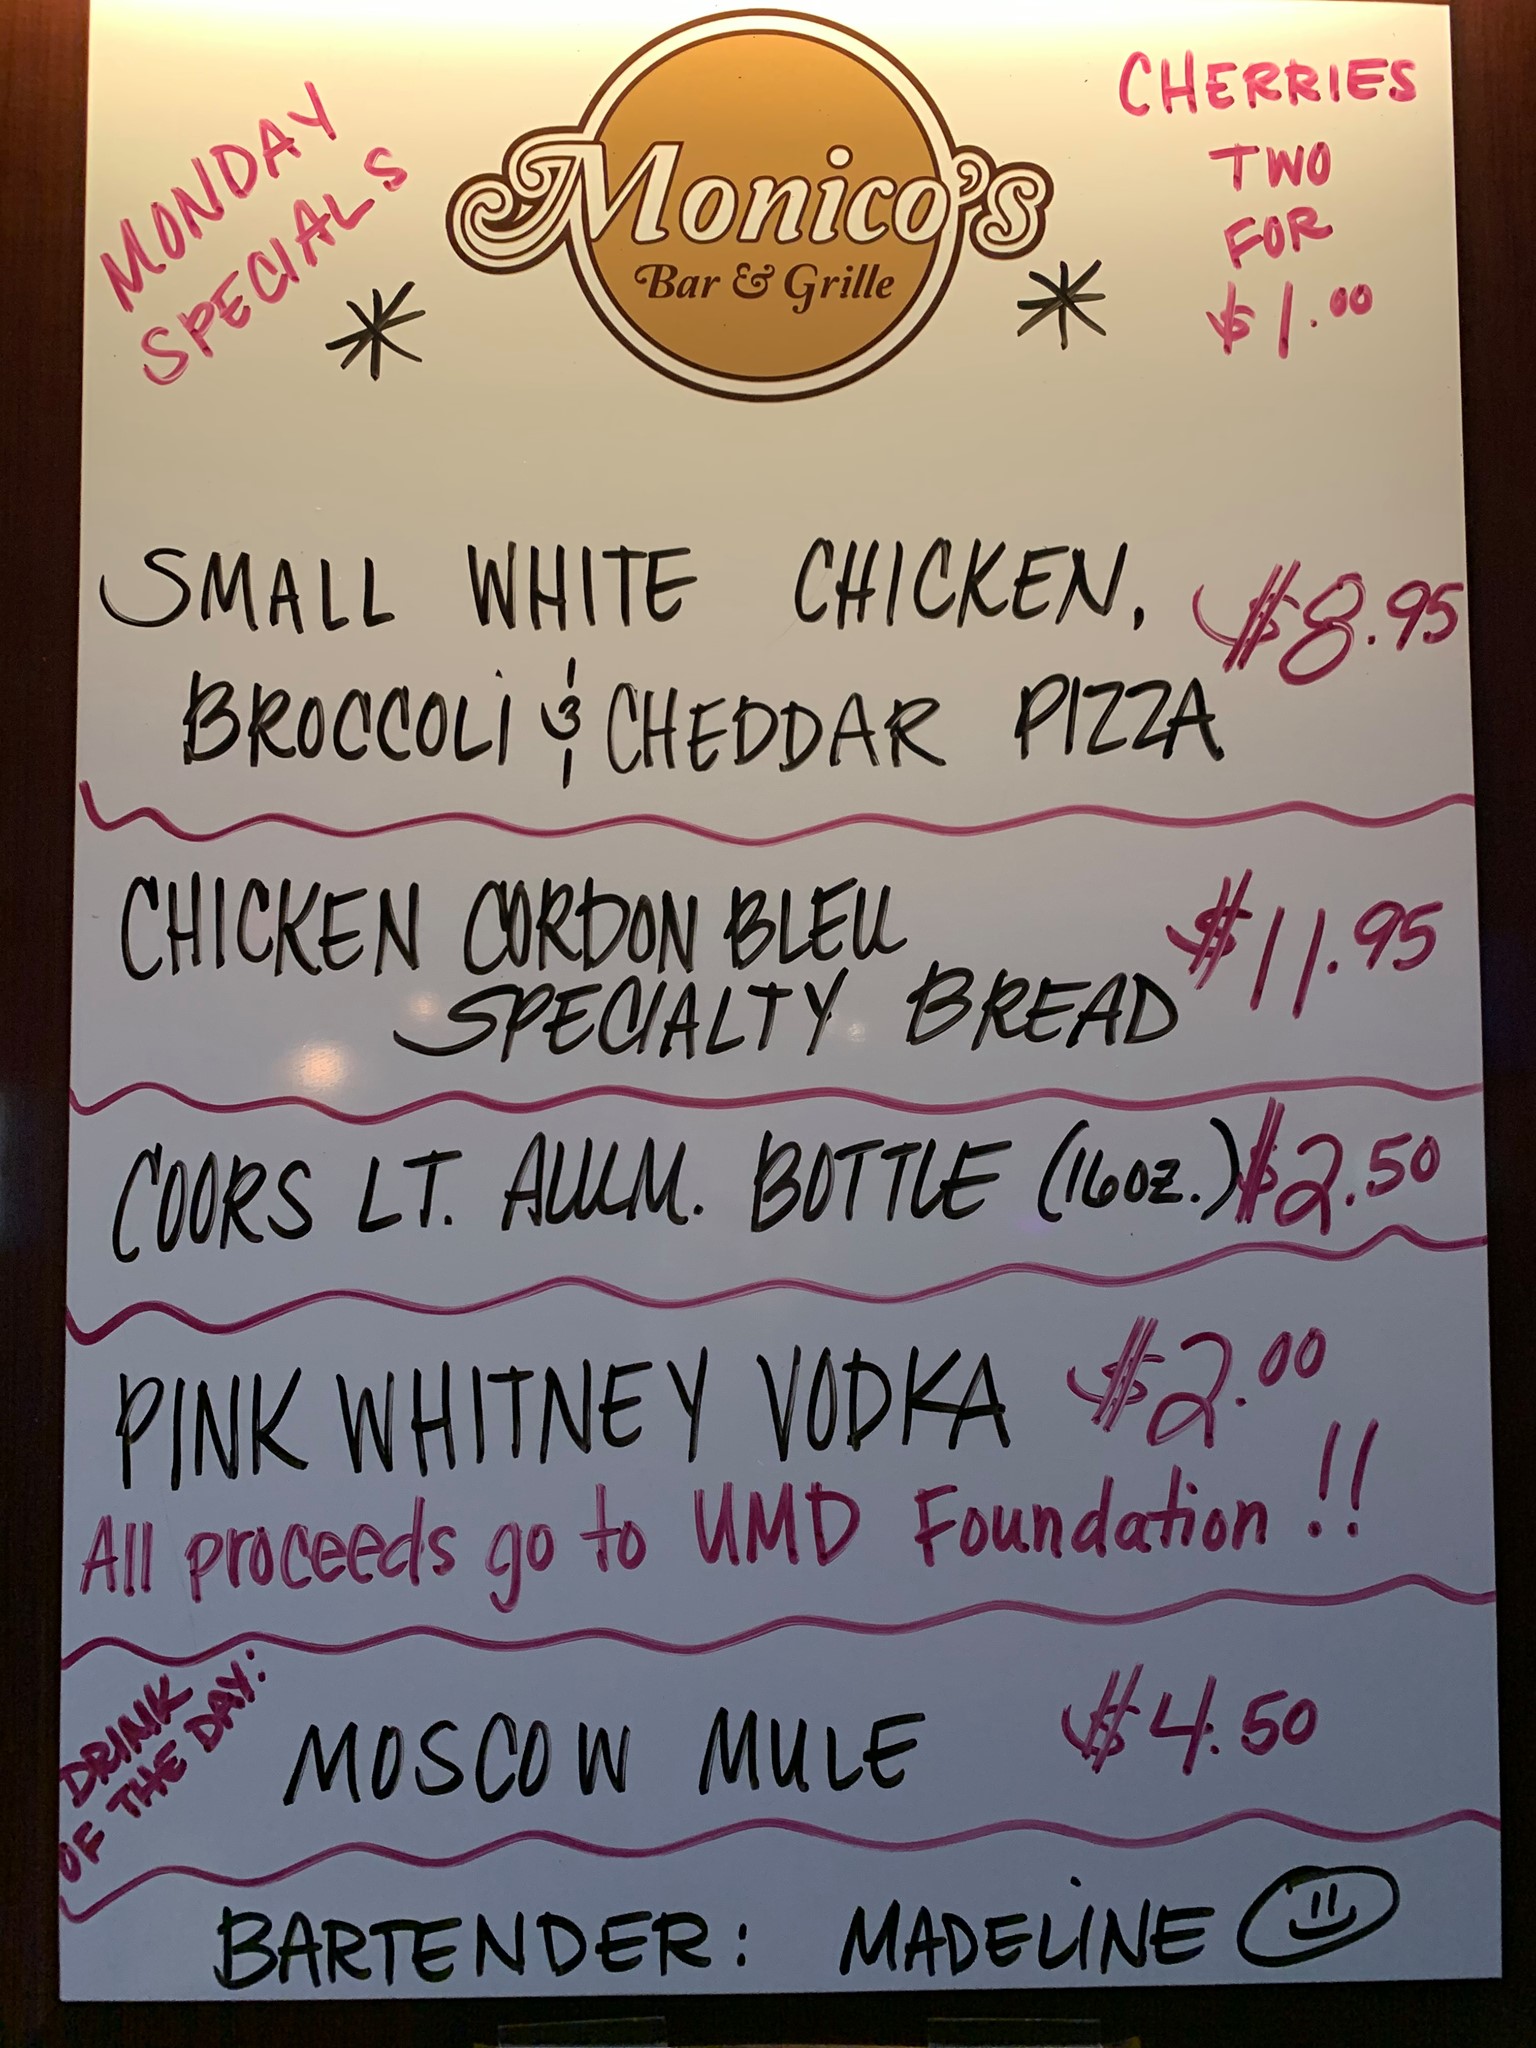 MONDAY
SPECIALS
Monico's
Bar & Grille
CHERRIES
TWO
FOR
$1.00
SMALL WHITE CHICKEN, $8.95
BROCCOLI & CHEDDAR PIZZA
CHICKEN CORDON BLEU $11.95
SPECIALTY BREAD
COORS LT. ALUM. BOTTLE (16oz.) $2.50
PINK WHITNEY VODKA $2.00
All proceeds go to UMD Foundation!!
DRINK
OF THE DAY:
MOSCOW MULE $4.50
BARTENDER: MADELINE